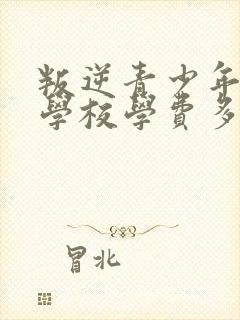 叛逆青少年
學校學費多
冒北